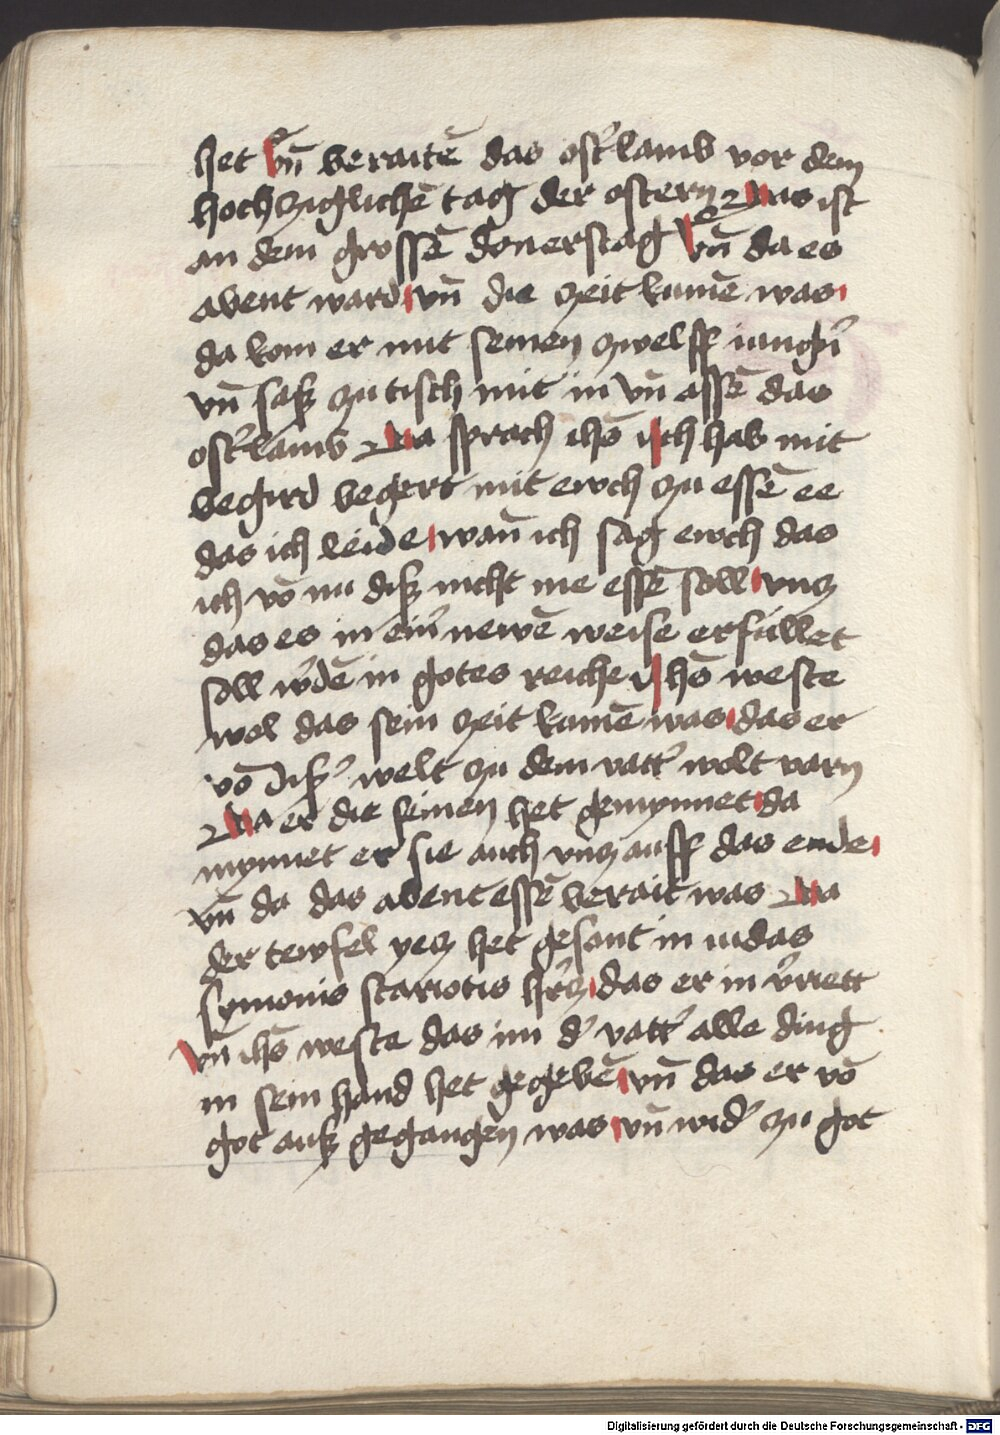 het Vn̄ beraitē das ost̉lamb vor dem
hochziglichē tag der ostern Das ist
an dem grossē donerstag Vn̄ da es
abent ward vn̄ die zeit kumē was
da kom er mit seinen zwelff iungn̉
vn̄ saß zu tisch mit in vn̄ assē das
ost̉lamb Da sprach ihs̄ ich hab mit
begird begert mit ewch zu essē ee
das ich leide wan̄ ich sag ewch das
ich vō nu diß nicht me essē soll vnꝫ
das es in ein̉ newē weise erfullet
soll w̉dē in gotes reiche Ihs̄ weste
wol das sein zeit kumē was das er
vō diß̉ welt zu dem vatt̉ wolt varn
Da er die seinen het gemynnet da
mynnet er sie auch vnꝫ auff das ende
vn̄ da das abent essē berait was Da
der tewfel yeꝫ het gesant in iudas
symonis scariotis h̉rꝫ das er in v̉riett
Vn̄ ihs̄ weste das im d̉ vatt̉ alle ding
in sein hand het gegebē vn̄ das er vō
got auß gegangen was vn̄ wid̉ zu got
Digitalisierung gefördert durch die Deutsche Forschungsgemeinschaft - DFG